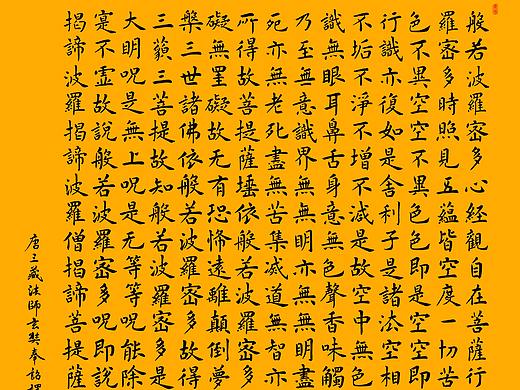 般若波羅密多心經觀自在菩薩行
羅密多時照見五蘊皆空度一切苦
色不異空空不異色色即是空空即
行識亦復如是舍利子是諸法空相
不垢不淨不增不減是故空中無色
識無眼耳鼻舌身意無色聲香味觸
乃至無意識界無無明亦無無明盡
死亦無老死盡無苦集滅道無智亦
所得故菩提薩埵依般若波羅密多
礙無罣礙故无有恐怖遠離顛倒夢
槃三世諸佛依般若波羅密多故得
三藐三菩提故知般若波羅密多是
大明呪是無上呪是无等等呪能除
寔不虛故說般若波羅密多呪即說
揭諦波羅揭諦波羅僧揭諦菩提薩
唐三藏法師玄奘奉詔譯